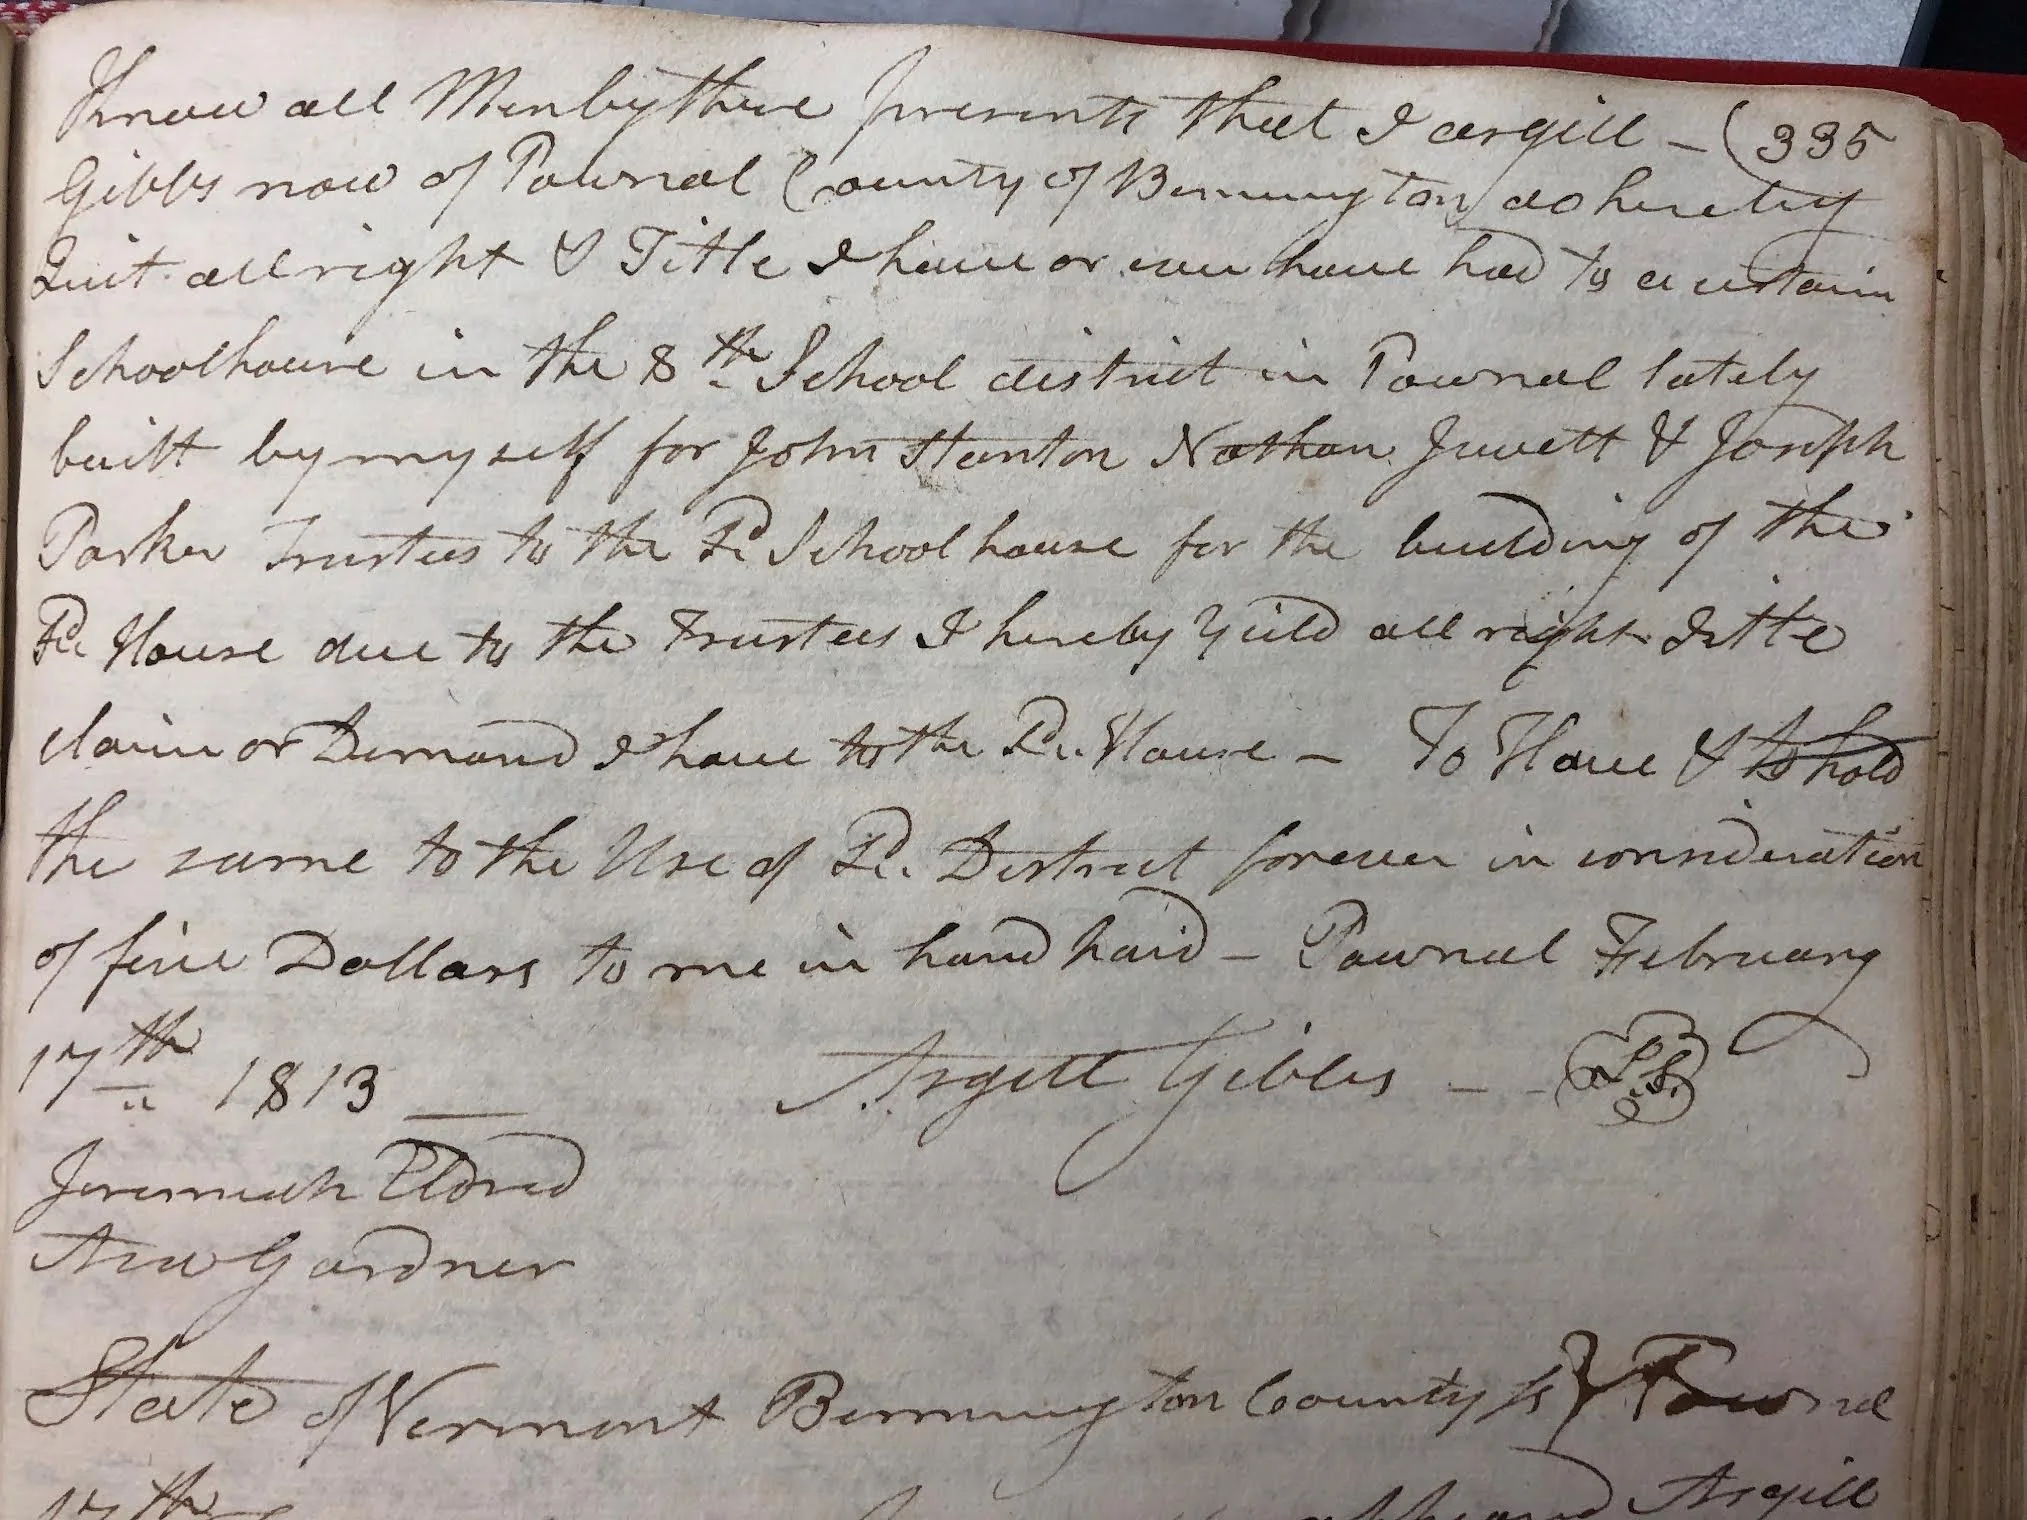 Know all Men by these presents that I argill – (335
Gibbs now of Pownal County of Bennington do hereby
Quit all right & Title I have or ever have had to a certain
Schoolhouse in the 8th School district in Pownal lately
built by myself for John Stanton Nathan Jewett & Joseph
Parker Trustees to the Sd School house for the building of the
Sd House due to the Trustees I hereby Yield all right Title
claim or Demand I have to the Sd House – To Have & to hold
the same to the Use of Sd District forever in consideration
of five Dollars to me in hand paid – Pownal February
17th 1813 Argill Gibbs – – L.S.
Jeremiah Eldred
Asa Gardner
State of Vermont Bennington County ss } Pownal
17th appeared Argill